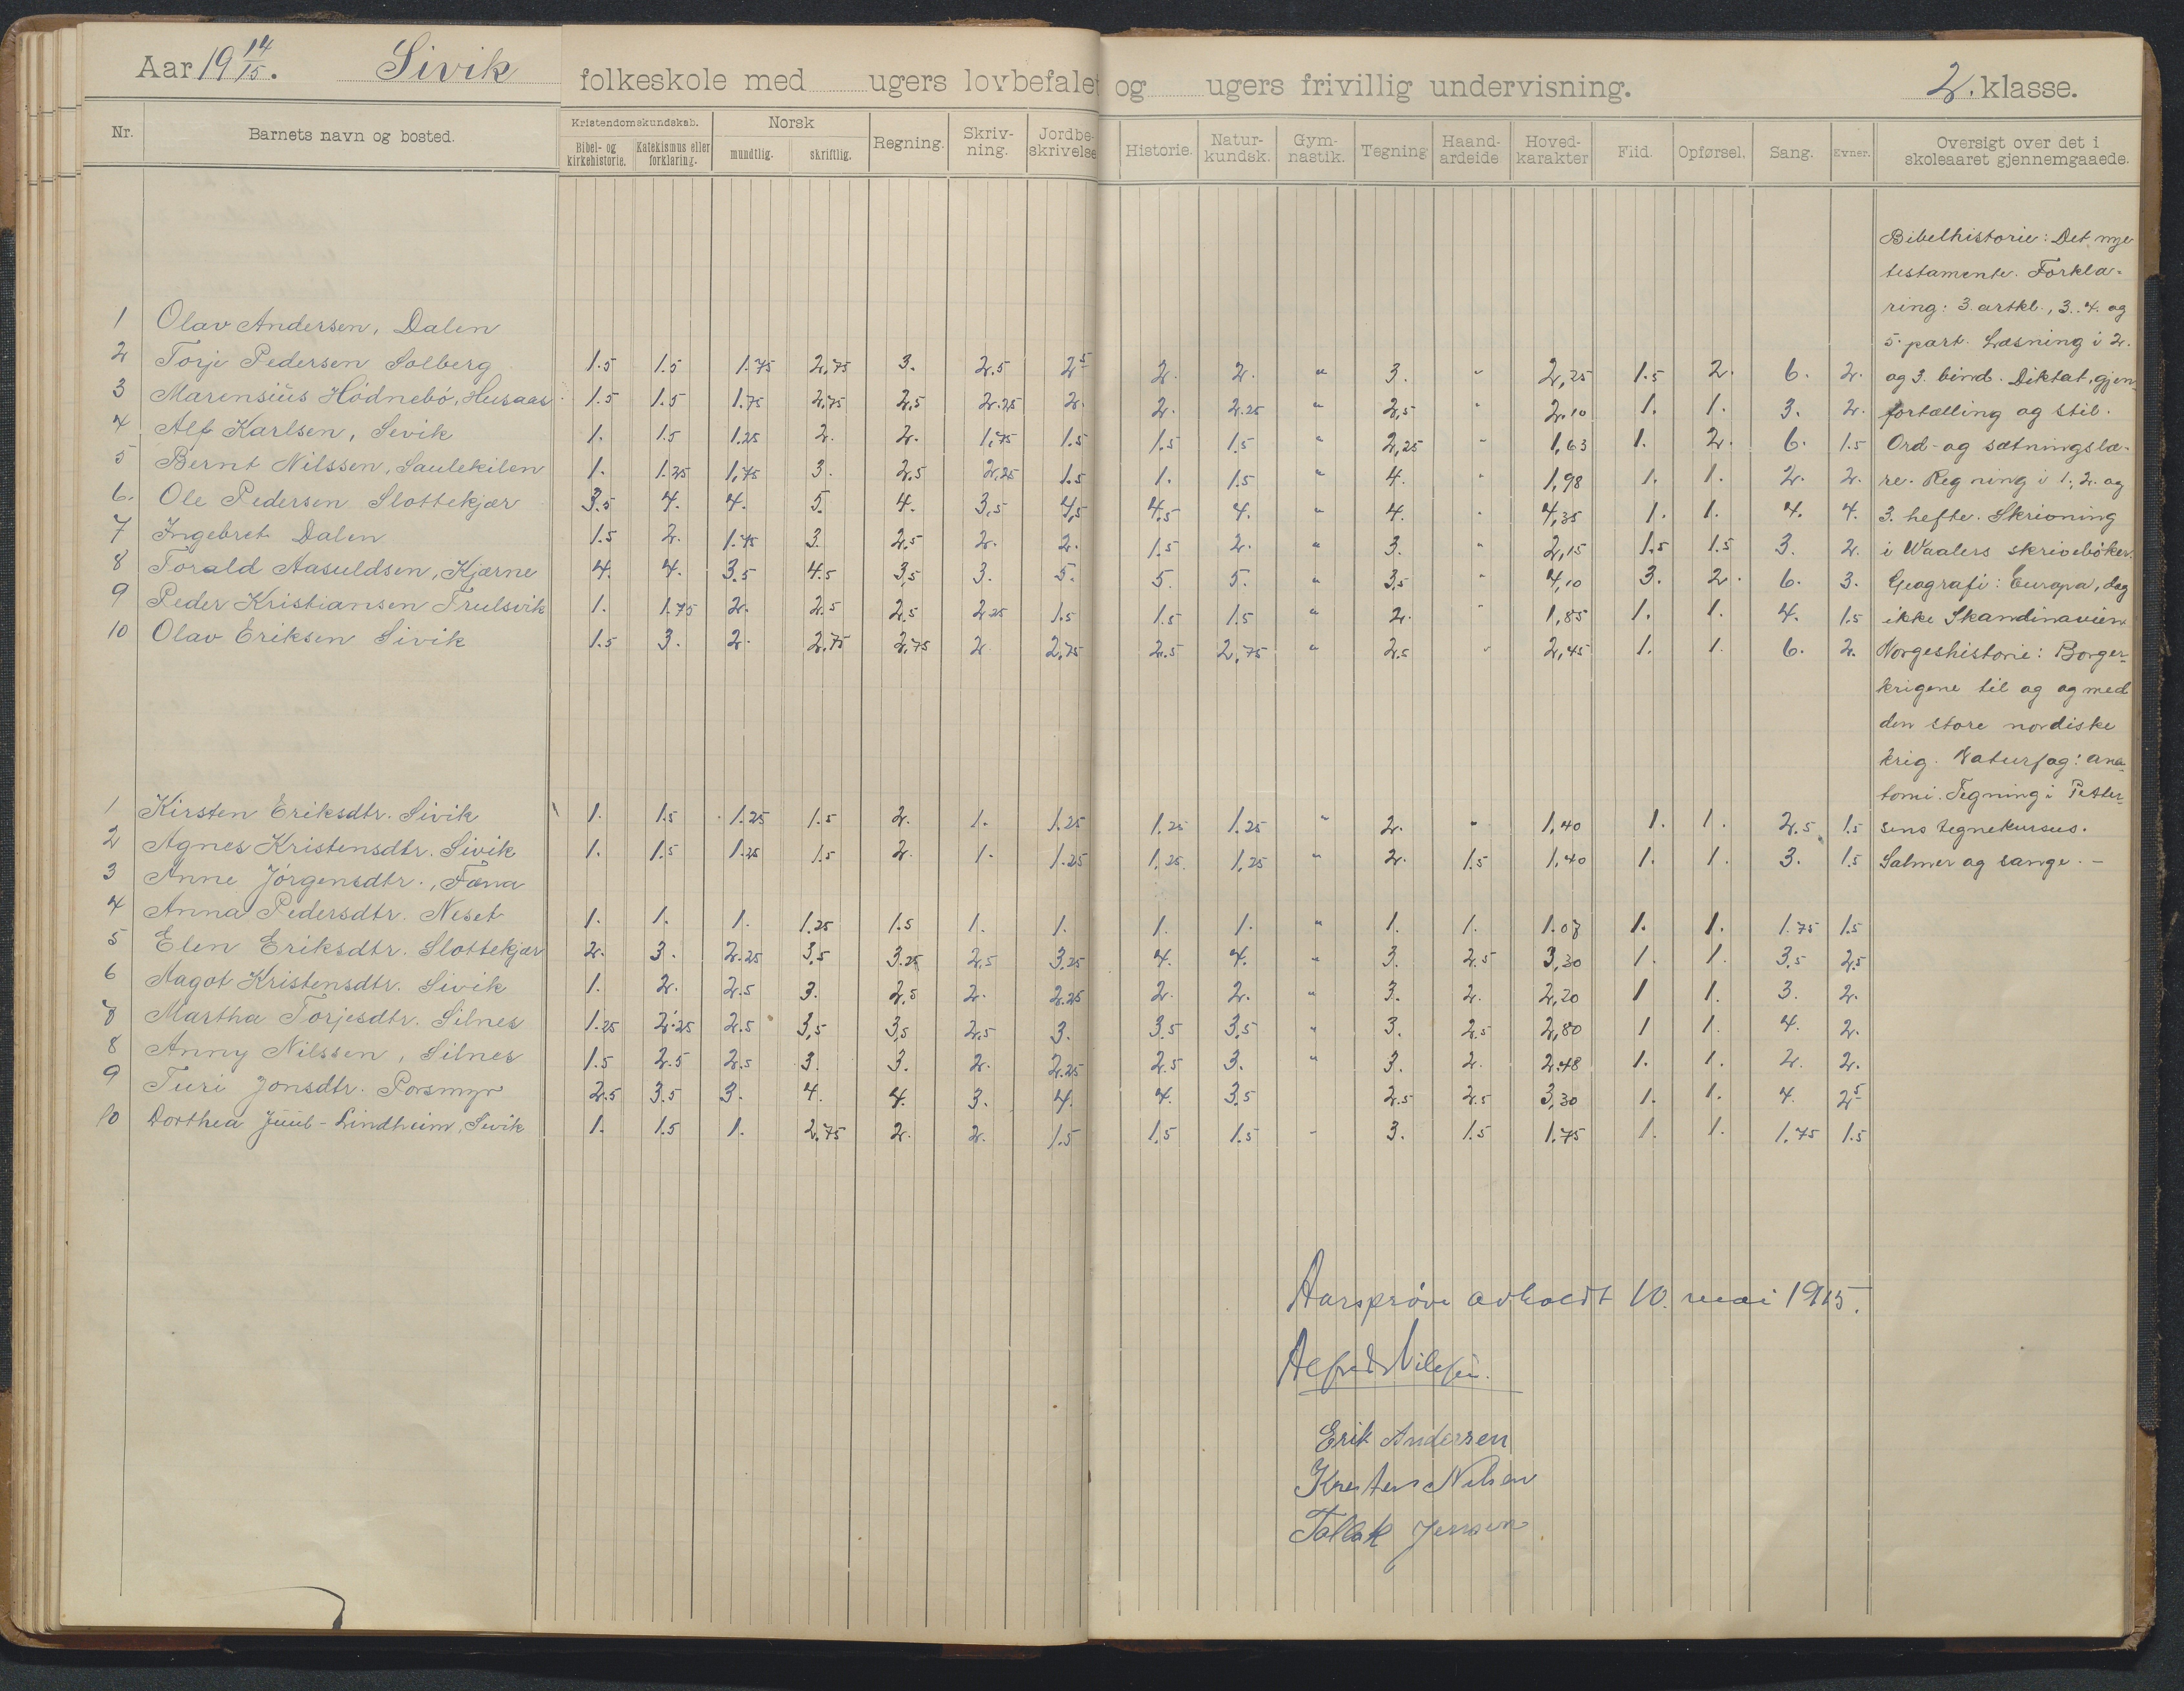 Aar 19 14/15. Sivik folkeskole med ugers lovbefalet og ugers frivillig undervisning. 2. klasse.
Nr. Barnets navn og bosted. Kristendomskundskab. Bibel- og kirkehistorie. Katekismus eller forklaring. Norsk mundtlig. skriftlig. Regning. Skriv-ning. Jordbe-skrivelse Historie. Natur-kundsk. Gym-nastik. Tegning Haand-arbeide Hoved-karakter Flid. Opførsel. Sang. Evner. Oversigt over det i skoleaaret gjennemgaaede.
1 Olav Andersen, Dalen
2 Torje Pedersen Solberg 1.5 1.5 1.75 2,75 3. 2.5 2.5 2. 2. " 3. " 2,25 1.5 2. 6. 2.
3 Marensius Hödnebö, Husaas 1.5 1.5 1.75 2,75 2,5 2.25 2. 2. 2.25 " 2,5 " 2.10 1. 1. 3. 2.
4 Alf Karlsen, Sevik 1. 1.5 1.25 2. 2. 1,75 1.5 1.5 1.5 " 2,25 " 1,63 1. 2. 6. 1.5
5 Bernt Nilssen, Saulekilen 1. 1.25 1,75 3. 2,5 2,25 1.5 1. 1.5 " 4. " 1,98 1. 1. 2. 2.
6. Ole Pedersen Slottekjær 3.5 4. 4. 5. 4. 3,5 4,5 4,5 4. " 4. " 4,35 1. 1. 4. 4.
7 Ingebret Dalen 1.5 2. 1.75 3. 2,5 2. 2. 1.5 2. " 3. " 2,15 1.5 1.5 3. 2.
8 Torald Aasuldsen, Kjærne 4. 4. 3.5 4.5 3,5 3. 5. 5. 5. " 3,5 " 4,10 3. 2. 6. 3.
9 Peder Kristiansen Trulsvik 1. 1.75 2. 2.5 2,5 2.25 1.5 1.5 1.5 " 2. " 1,85 1. 1. 4. 1.5
10 Olav Eriksen Sivik 1.5 3. 2. 2,75 2,75 2 2,75 2.5 2,75 " 2.5 " 2,45 1. 1. 6. 2.
1 Kirsten Eriksdtr. Sivik 1. 1.5 1.25 1.5 2. 1. 1.25 1.25 1.25 " 2. " 1,40 1. 1. 2.5 1.5
2 Agnes Kristensdtr. Sivik 1. 1.5 1.25 1.5 2. 1. 1.25 1.25 1,25 " 2. 1.5 1,40 1. 1. 3. 1.5
3 Anne Jörgensdtr., Fæna
4 Anna Pedersdtr. Neset 1. 1. 1. 1.25 1.5 1. 1. 1. 1. " 1. 1. 1.07 1. 1. 1.75 1.5
5 Elen Eriksdtr. Slottekjær 2. 3. 2.25 3,5 3.25 2,5 3.25 4. 4. " 3. 2.5 3,30 1. 1. 3,5 2,5
6 Aagot Kristensdtr. Sivik 1. 2. 2.5 3. 2,5 2. 2.25 2. 2. " 3. 2. 2,20 1 1. 3. 2.
7 Martha Torjesdtr. Silnes 1.25 2.25 2.5 3,5 3,5 2,5 3. 3.5 3,5 " 3. 2.5 2,80 1 1. 4. 2.
8 Anny Nilssen, Silnes 1.5 2.5 2.5 3. 3. 2. 2.25 2.5 3. " 3. 2. 2.48 1. 1. 2. 2.
9 Turi Jonsdtr. Porsmyr 2.5 3.5 3. 4. 4. 3. 4. 4. 3.5 2.5 2.5 3,30 1. 1. 4. 2.5
10 Dorthea Juul-Lindheim, Sivik 1. 1.5 1. 2.75 2. 2. 1.5 1.5 1.5 - 3. 1.5 1.75 1. 1. 1.75 1.5
Bibelhistorie: Det nye
testamente. Forkla-
ring: 3. artkl., 3. 4. og
5. part. Læsning i 2.
og 3. bind. Diktat, gjen-
fortælling og stil.
Ord- og sætningslæ-
re. Regning i 1., 2. og
3. hefte. Skrivning
i Waalers skrivebøker.
Geografi: Europa, dog
ikke Skandinavien.
Norgeshistorie: Borger-
krigene til og og med
den store nordiske
krig. Naturfag: ana-
tomi. Tegning i Petter-
sens tegnekursus.
Salmer og sange. –
Aarsprøve avholdt 10. mai 1915.
Alfred Nilsen.
Erik Andersen
Kresten Nilsen
Tallak Jensen